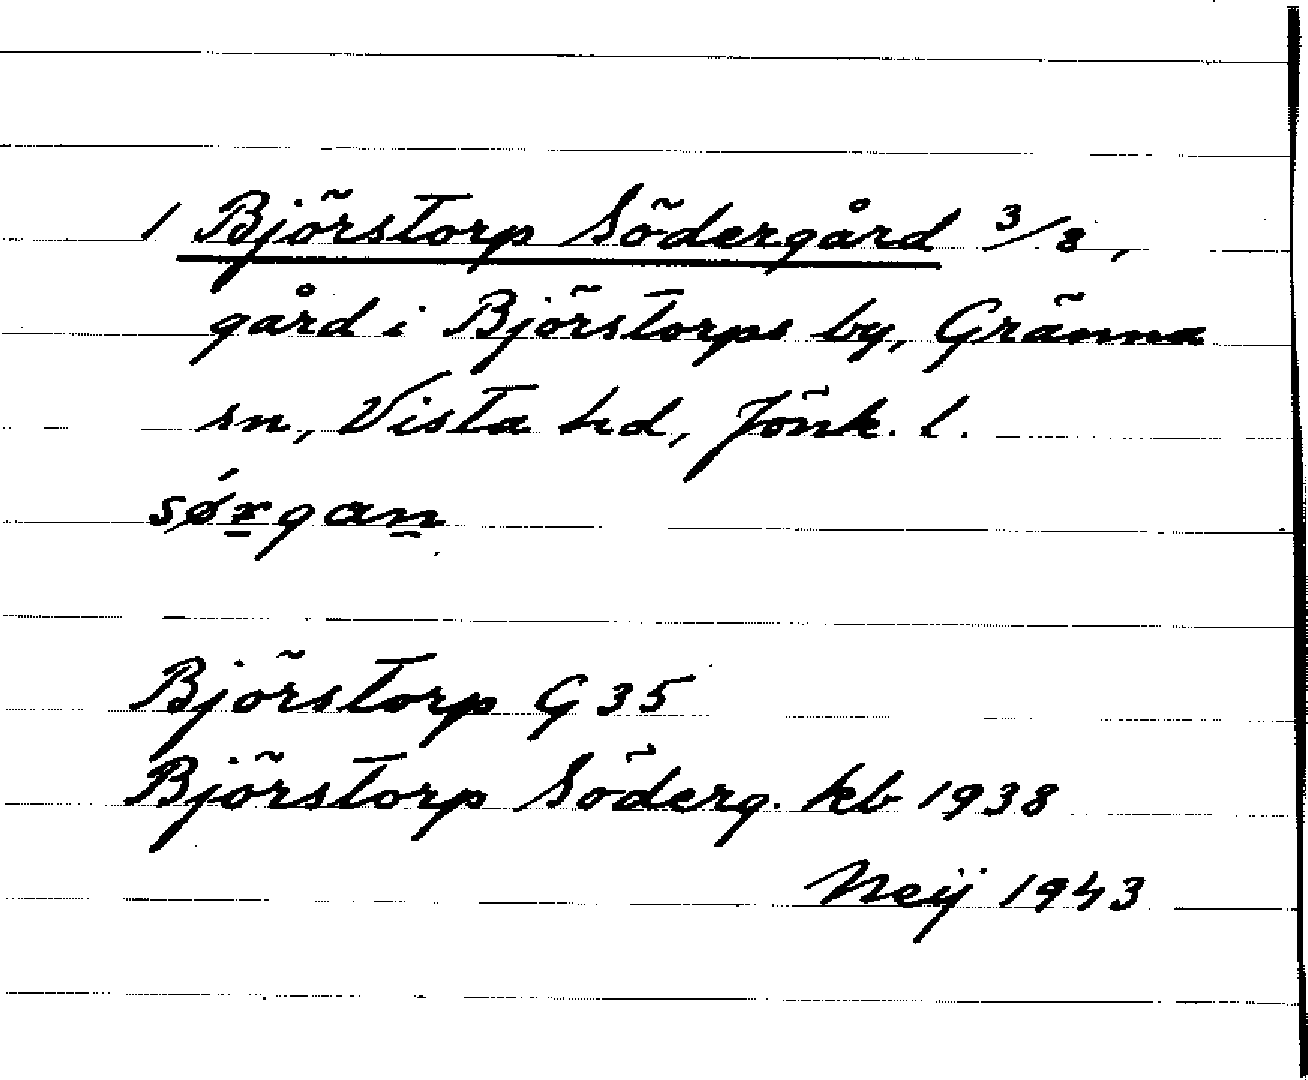 1 Björstorp Södergård 3/8,
gård i Björstorps by, Gränna
sn, Vista hd, Jönk. l.
sǿrgan
Björstorp G 35
Björstorp Söderg. kb 1938
Neij 1943